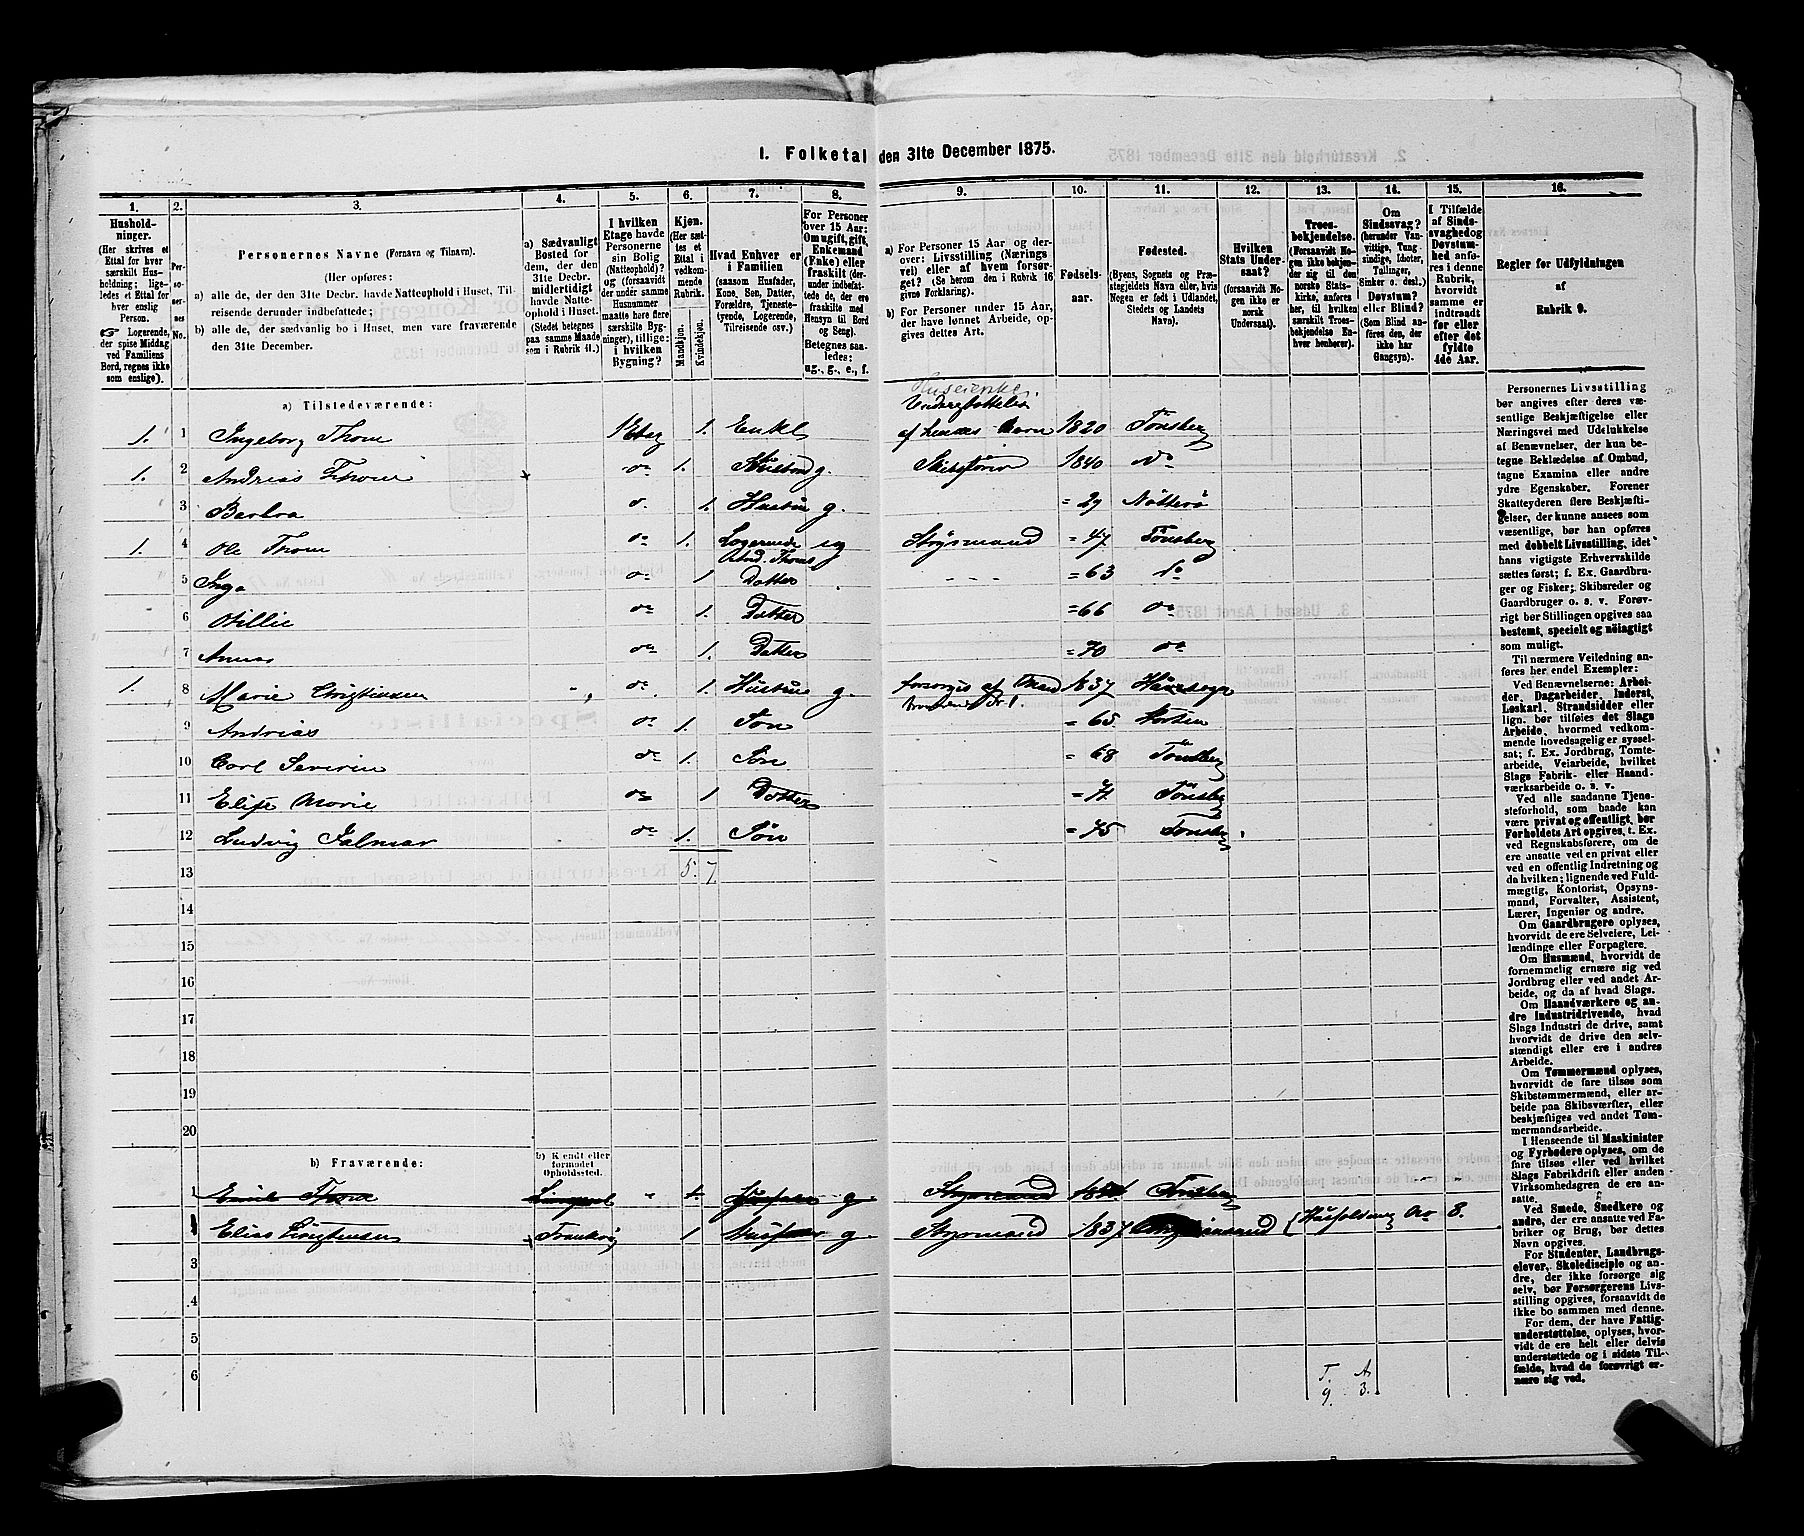 1. Folketal den 31te December 1875.
1. 2. 3. 4. 5. 6. 7. 8. 9. 10. 11. 12. 13. 14. 15. 16.
Hushold-
ninger.
(Her skrives et
Ettal for hver
særskilt Hus-
holdning; lige-
ledes et Ettal for
hver enslig
Person.
Logerende,
der spise Middag
ved Familiens
Bord, regnes ikke
som enslige).
Personernes Navne (Fornavn og Tilnavn).
(Her opføres:
a) alle de, der den 31te Decbr. havde Natteophold i Huset, Til-
reisende derunder indbefattede;
b) alle de, der sædvanlig bo i Huset, men vare fraværende
den 31te December.
a) Sædvanligt
Bosted for
dem, der den
31te Decbr.
midlertidigt
havde Natte-
ophold i Huset.
(Stedet betegnes
paa samme Maade
som i Rubrik 11.)
I hvilken
Etage havde
Personerne
sin Bolig
(Natteophold)?
og (forsaavidt
der under samme
Husnummer
maatte høre flere
særskilte Byg-
ninger), tillige:
i hvilken
Bygning?
Kjøn.
(Her sæt-
tes et
Ettal i
vedkom-
mende
Rubrik.
Mandkjøn.
Kvindekjøn.
Hvad Enhver er
i Familien
(saasom Husfader,
Kone, Søn, Datter,
Forældre, Tjeneste-
tyende, Logerende,
Tilreisende osv.)
For Personer
over 15 Aar:
Om ugift, gift,
Enkemand
(Enke) eller
fraskilt (der-
under indbefat-
tede de, der ere
fraskilte med
Hensyn til Bord
og Seng).
Betegnes saa-
ledes:
ug., g., e., f.
a) For Personer 15 Aar og der-
over: Livsstilling (Nærings
vei) eller af hvem forsør-
get? (Se herom den i Rubrik 16
givne Forklaring).
b) For Personer under 15 Aar,
der have lønnet Arbeide, op-
gives dettes Art.
Fødsels-
aar.
Fødested.
(Byens, Sognets og Præ-
stegjeldets Navn eller, hvis
Nogen er født i Udlandet,
Stedets og Landets
Navn).
Hvilken
Stats Under-
saat?
(forsaavidt No-
gen ikke er
norsk
Undersaat).
Troes-
bekjendelse.
(Forsaavidt No-
gen ikke beken-
der sig til den
norske Stats-
kirke, anføres
her, til hvilken
særskilt Troes-
bekjendelse En-
hver henhører).
Om
Sindssvag?
(herunder Van-
vittige, Tung-
sindige, Idioter,
Tullinger,
Sinker o. desl.)
Døvstum?
eller Blind?
(Som Blind an-
føres den, der
ikke har
Gangsyn).
I Tilfælde
af Sinds-
svaghed og
Døvstum-
hed anfø-
res i denne
Rubrik,
hvorvidt
samme er
indtraadt
før eller
efter det
fyldte
4de Aar.
Regler for Udfyldningen
af
Rubrik 9.
a) Tilstedeværende:
1. 1 Ingeborg Thom 1 Etag 1. Enke Understøttelse af hendes Børn 1820 Tønsberg
1. 2 Andreas Thom do 1. g. Skibsfører 1840 do
3 Barbra do 1. Hustru g. = 29 Nötterö
1. 4 Ole Thom do 1. Logerende ug Styrmand = 47 Tönsberg
5 Inga do 1. Datter = 63 do
6 do 1. Datter = 66 do
7 do 1. Datter = 70 do
1. 8 Marie Christiansen do 1. Hustru g. forsørges af Mand 1837
9 Andrias do 1. Søn = 65 Horten
10 Carl Severin do 1. Søn = 68 Tönsberg
11 Elise Marie do 1 Datter = 71 Tönsberg
12 Ludvig Jalmar do 1. Søn = 75 Tönsberg
13 5. 7
14
15
16
17
18
19
20
b) Fraværende:
b) Kjendt eller
formodet
Opholdssted.
1 Thom Styrmand Tönsberg
Elias Christensen Frankrig 1 Husfader g. Styrmand 1837 Husholdning No 8.
3
4
5
6
T. A
9. 3.
Personernes Livsstilling
bør angives efter deres væ-
sentlige Beskjæftigelse eller
Næringsvei med Udelukkelse
af Benævnelser, der kun be-
tegne Beklædelse af Ombud,
tagne Examina eller andre
ydre Egenskaber. Forener
Skatteyderen flere Beskjæfti-
gelser, der kunne ansees som
væsentlige, bør han opføres
med dobbelt Livsstilling, idet
hans vigtigste Erhvervskilde
sættes først; f. Ex. Gaardbru-
ger og Fisker; Skibsreder og
Gaardbruger o. s. v. Forøv-
rigt bør Stillingen opgives saa
bestemt, specielt og nöiagtigt
som muligt.
Til nærmere Veiledning an-
føres her endel Exempler:
Ved Benævnelserne: Arbei-
der, Dagarbeider, Inderst,
Løskarl, Strandsidder eller
lign. bør tilføies det Slags
Arbeide, hvormed vedkom-
mende hovedsagelig er syssel-
sat; f. Ex. Jordbrug, Tomte-
arbeide, Veiarbeide, hvilket
Slags Fabrik- eller Haand-
værksarbeide o. s. v.
Ved alle saadanne Tjene-
steforhold, som baade kan
være privat og offentligt, bør
Forholdets Art opgives, t. Ex.
ved Regnskabsførere, om de
ere ansatte ved en privat eller
ved en offentlig Indretning og
da hvilken; lignende ved Fuld-
mægtig, Kontorist, Opsyns-
mand, Forvalter, Assistent,
Lærer, Ingeniør og andre.
Om Gaardbrugere oplyses,
hvorvidt de ere Selveiere, Lei-
lændinge eller Forpagtere.
Om Husmænd, hvorvidt de
fornemmelig ernære sig ved
Jordbrug eller ved andet Ar-
beide, og da af hvad Slags.
Om Haandværkere og an-
dre Industridrivende, hvad
Slags Industri de drive, samt
hvorvidt de drive den selv-
stændigt eller ere i andres
Arbeide.
Om Tømmermænd oplyses,
hvorvidt de fare tilsøs som
Skibstømmermænd, eller ar-
beide paa Skibsværfter, eller
beskjæftiges ved andet Tøm-
mermandsarbeide.
I Henseende til Maskinister
og Fyrbødere oplyses, om de
fare tilsøs eller ved hvilket
Slags Fabrikdrift eller anden
Virksomhedsgren de ere an-
satte.
Ved Smede, Snedkere og
andre, der ere ansatte ved Fa-
briker og Brug, bør dettes
Navn opgives.
For Studenter, Landbrugs-
elever, Skoledisciple og an-
dre, der ikke forsørge sig
selv, bør Forsørgerens Livs-
stilling opgives, forsaavidt de
ikke bo sammen med denne.
For dem, der have Fattig-
understøttelse, oplyses, hvor-
vidt de ere helt eller delvis
understøttede og i sidste Til-
fælde, hvad de forøvrigt er-
nære sig ved.